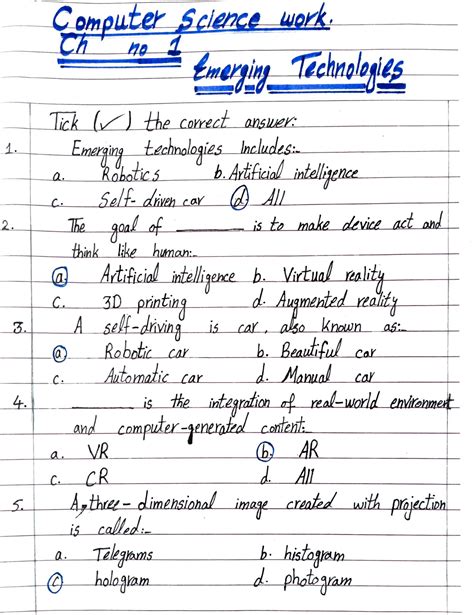 Computer Science work.
Ch no 1
Emerging Technologies
Tick (✓) the correct answer:
1. Emerging technologies Includes:-
a. Robotics b. Artificial intelligence
c. Self-driven car d All
2. The goal of ________ is to make device act and
think like human:-
a Artificial intelligence b. Virtual reality
c. 3D printing d. Augmented reality
3. A self-driving is car, also known as:-
a Robotic car b. Beautiful car
c. Automatic car d. Manual car
4. ________ is the integration of real-world environment
and computer-generated content:-
a. VR b. AR
c. CR d. All
5. A three-dimensional image created with projection
is called:-
a. Telegrams b. histogram
c hologram d. photogram